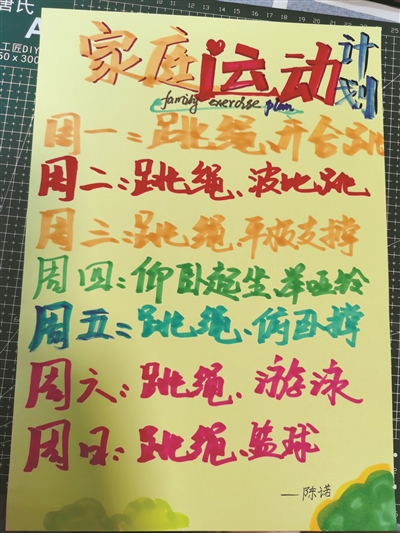 家庭运动计划
family exercise plan
周一:跳绳、开合跳
周二:跳绳、波比跳
周三:跳绳、平板支撑
周四:仰卧起坐、举哑铃
周五:跳绳、俯卧撑
周六:跳绳、游泳
周日:跳绳、篮球
——陈诺